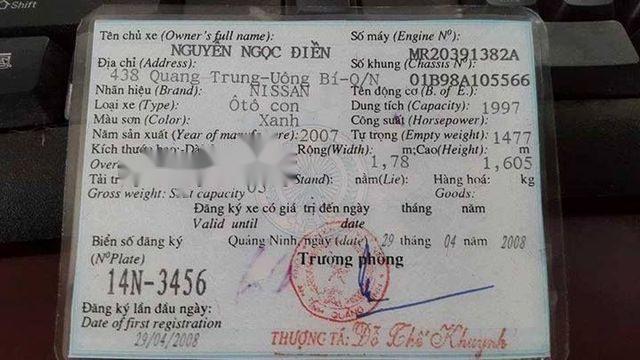 Shift
Tên chủ xe (Owner's full name): Số máy (Engine Nº):
NGUYỄN NGỌC ĐIỀN MR20391382A
Địa chỉ (Address): Số khung (Chassis Nº):
438 Quang Trung-Uông Bí-Q/N 01B98A105566
Nhãn hiệu (Brand): NISSAN Tên động cơ (B. of E.):
Loại xe (Type): Ôtô con Dung tích (Capacity): 1997
Màu sơn (Color): Xanh Công suất (Horsepower):
Năm sản xuất (Year of manufacture): 2007 Tự trọng (Empty weight): 1477
Kích thước Rộng(Width): m;Cao(Height): m
1,78 1,605
Tải tr Stand): nằm(Lie): Hàng hoá: kg
Gross weight: Seat capacity 05 Goods:
Đăng ký xe có giá trị đến ngày tháng năm
Valid until date
Biển số đăng ký Quảng Ninh, ngày (date) 29 04 năm 2008
(NºPlate) Trưởng phòng
14N-3456
Đăng ký lần đầu ngày:
Date of first registration
29/04/2008
QUẢNG
THƯỢNG TÁ: Đỗ Thế Khuynh